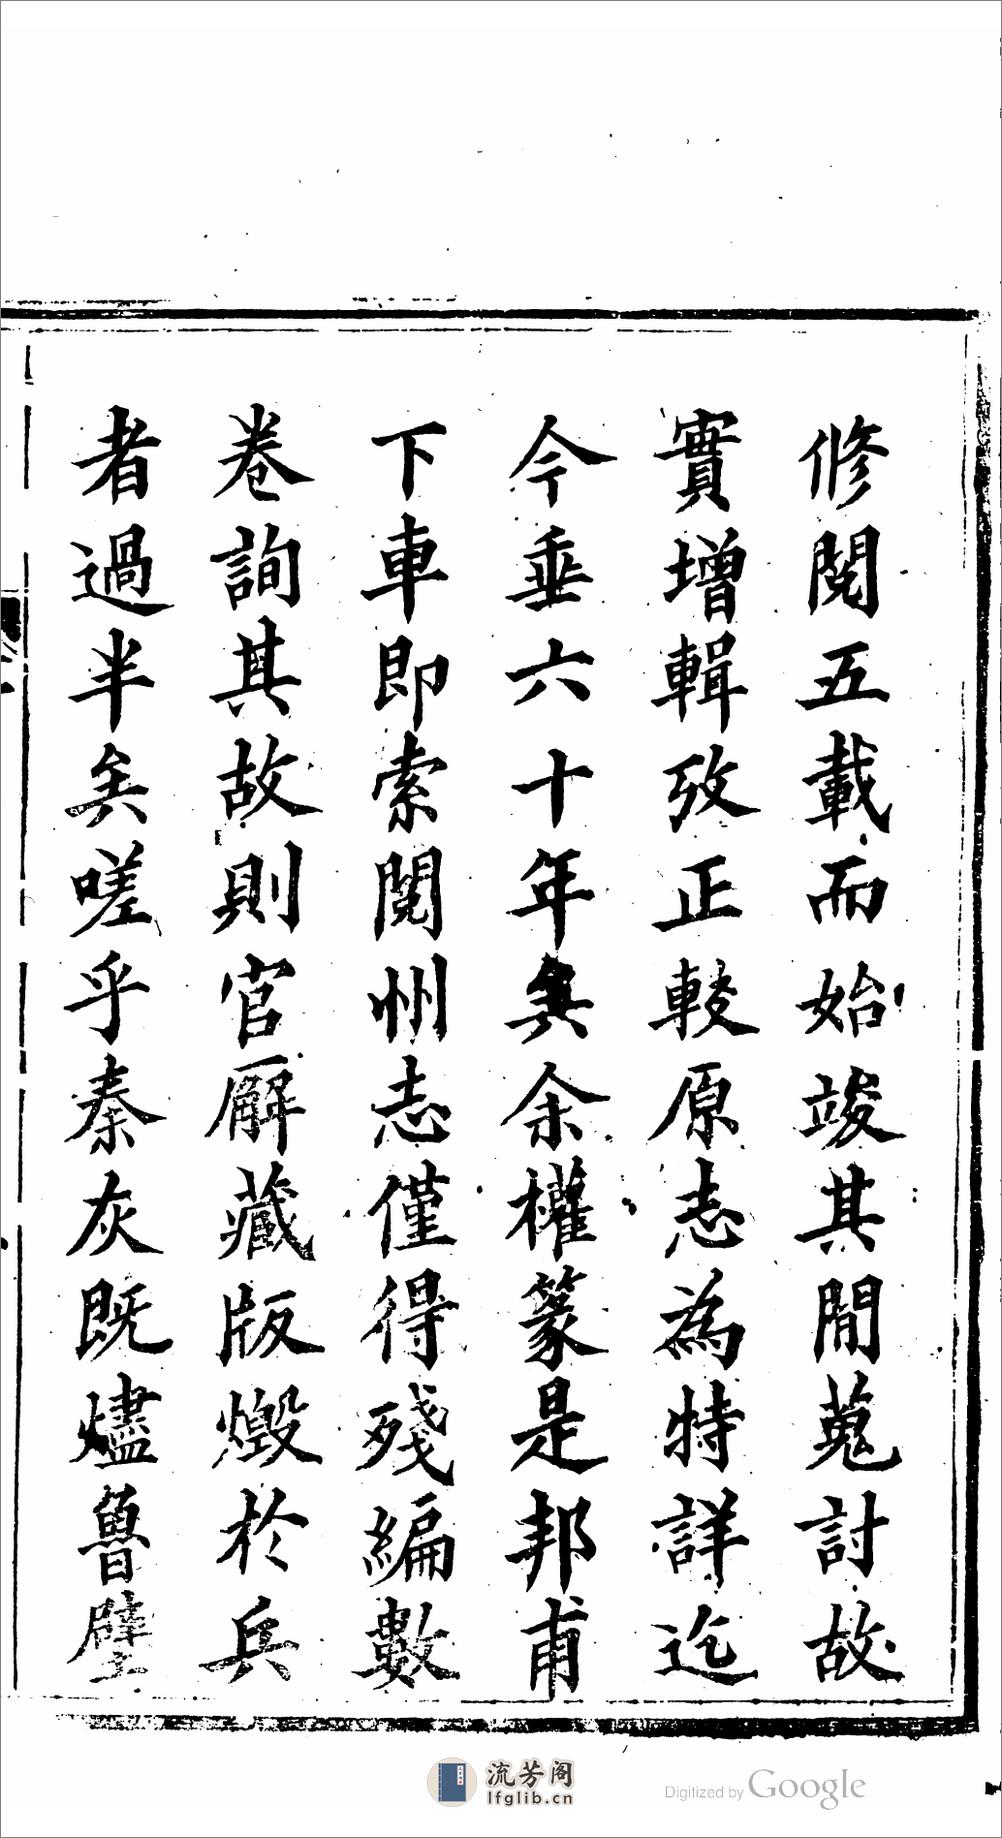 修閱五載而始竣其閒蒐討故
實增輯攷正較原志為特詳迄
今垂六十年矣余權篆是邦甫
下車即索閱州志僅得殘編數
卷詢其故則官廨藏版燬於兵
者過半矣嗟乎秦灰既燼魯壁
流芳阁
lfglib.cn
Digitized by Google